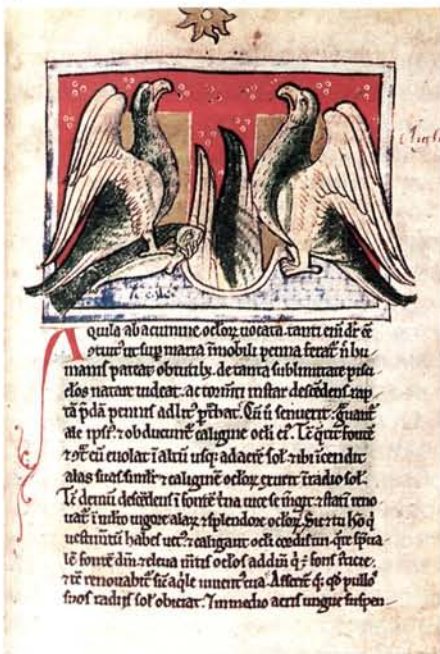 Aquila ab acumine oclor̄ vocata. tanti eni dr̄ eē
ut sup maria īmobili penna ferat̄ n̄ hu
manis pateat obtutib; de tanta sublimitate pisci
clos natare videat. ac tormti instar descēdens rap
tā p̄dā pennis ad lit̄ p̄tbat. Cū ū senuerit. ḡuant̄
ale ipsiꝰ. ⁊ obducunt̄ caligine ocli eiꝰ. Tē q̄rit fontē
⁊ 9t̄ eū evolat ī altū usq; ad aerē sol̄. ⁊ ibi īcendit
alas suas similr̄ ⁊ caliginē oclor̄ exurit ī radio sol̄.
Tē demū descēdens ī fontē t̄na vice se m̄git. ⁊ statī reno
vat̄ ī multo vigore alar̄. ⁊ splendore oclor̄. Sic ⁊ tu hō q̄
vestimtū habes vet⁹. ⁊ caligant ocli cordis tui. q̄re sp̄ita
lē fontē dni. ⁊ eleva mtis oclos ad dnm q̄ ē fons iusticie.
⁊ tē renovabit̄ sic̄ aq̄le iuventꝰ tua. Asserit̄ q̄; qd̄ pullos
suos radiis sol̄ obiciat. ⁊ in medio aeris ungue suspen